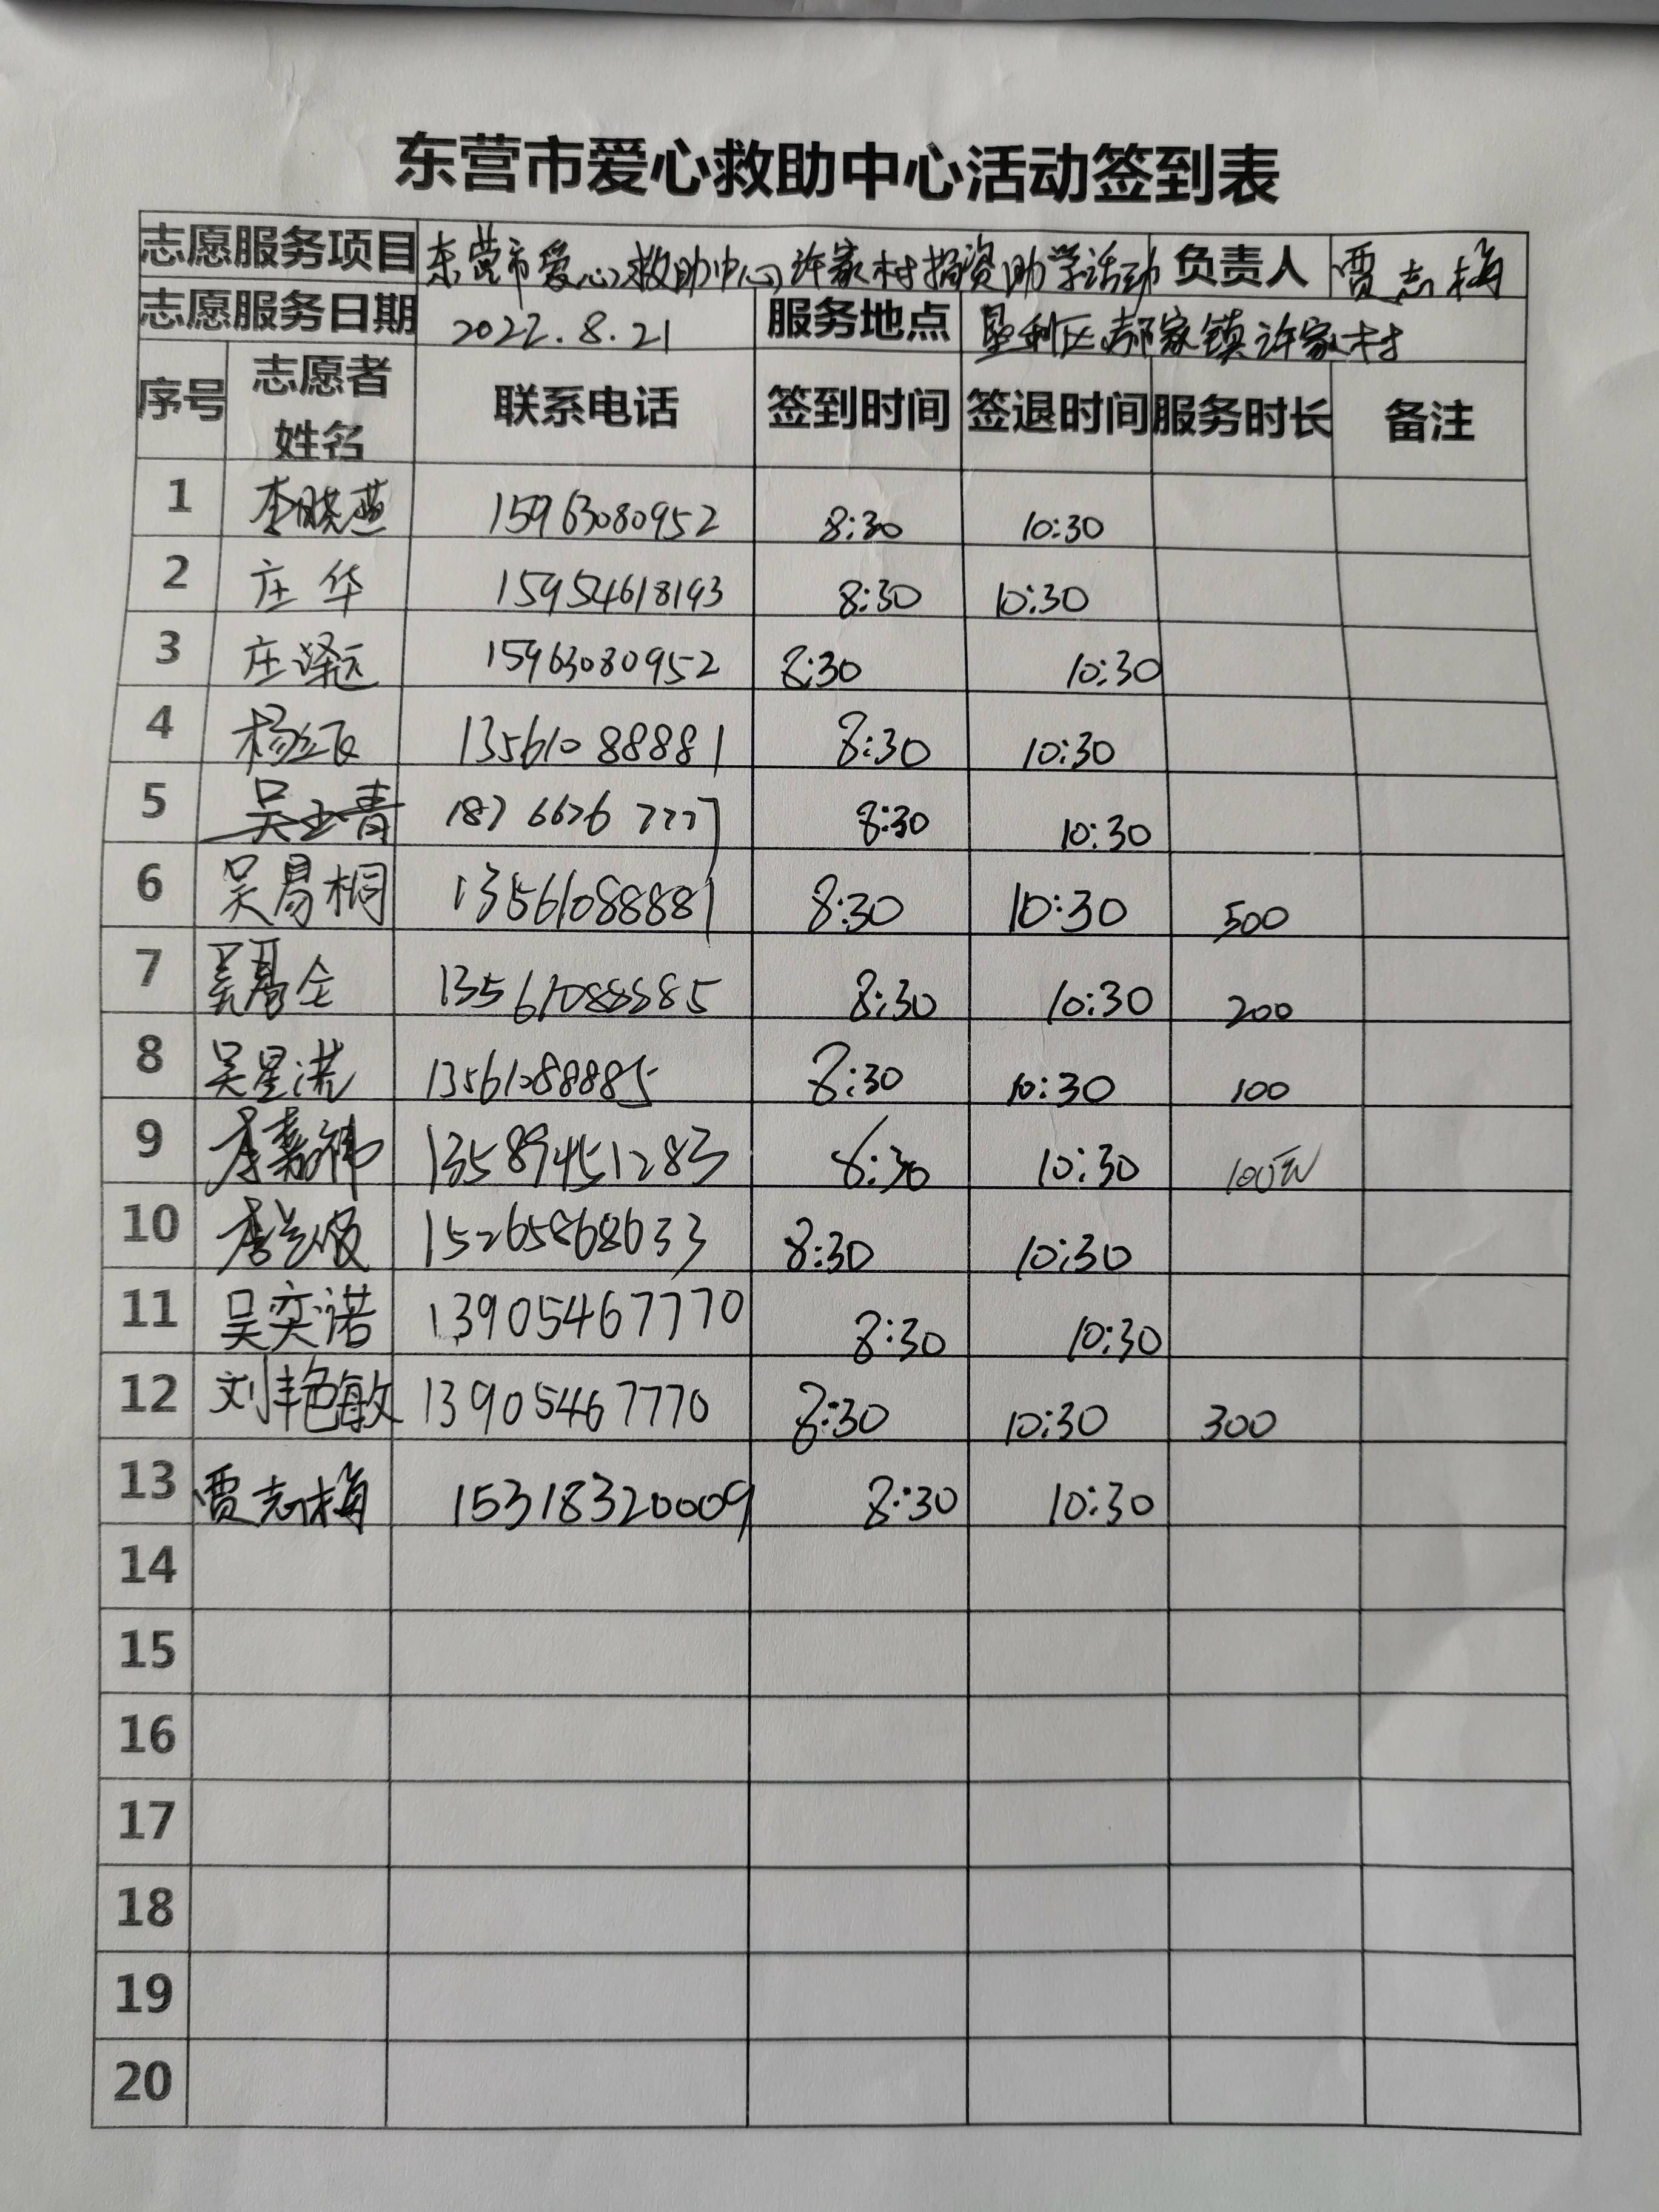 东营市爱心救助中心活动签到表
志愿服务项目 东营市爱心救助中心许家村捐资助学活动 负责人 贾志梅
志愿服务日期 2022.8.21 服务地点 垦利区郝家镇许家村
序号 志愿者姓名 联系电话 签到时间 签退时间 服务时长 备注
1 李晓燕 15963080952 8:30 10:30
2 庄华 15954618193 8:30 10:30
3 庄泽远 15963080952 8:30 10:30
4 杨红 13561088881 8:30 10:30
5 吴玉青 18766267777 8:30 10:30
6 吴易桐 13561088881 8:30 10:30 500
7 吴易仝 13561088885 8:30 10:30 200
8 吴星诺 13561088885 8:30 10:30 100
9 李嘉祎 13589451283 8:30 10:30 100元
10 15265868633 8:30 10:30
11 吴奕诺 13905467770 8:30 10:30
12 刘艳敏 13905467770 8:30 10:30 300
13 贾志梅 15318320009 8:30 10:30
14
15
16
17
18
19
20